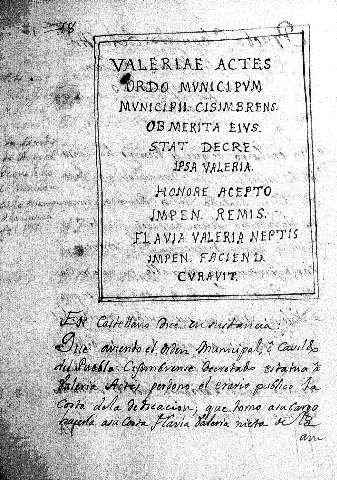 18
VALERIAE ACTES
ORDO MVNICIPVM
MVNICIPII. CISIMBRENS.
OB MERITA EIVS.
STAT DECRE
IPSA VALERIA.
HONORE ACEPTO
IMPEN. REMIS.
FLAVIA VALERIA NEPTIS
IMPEN. FACIEND.
CVRAVIT.
En Castellano Dice en sustancia:
Que aviendo el Orden Municipal, ò Cavildo
del Pueblo Cisimbrense decretado estatua à
Valeria Actes, perdonò el erario publico la
costa de la dedicacion, que tomo asu cargo
asu costa Flavia Valeria nieta de la